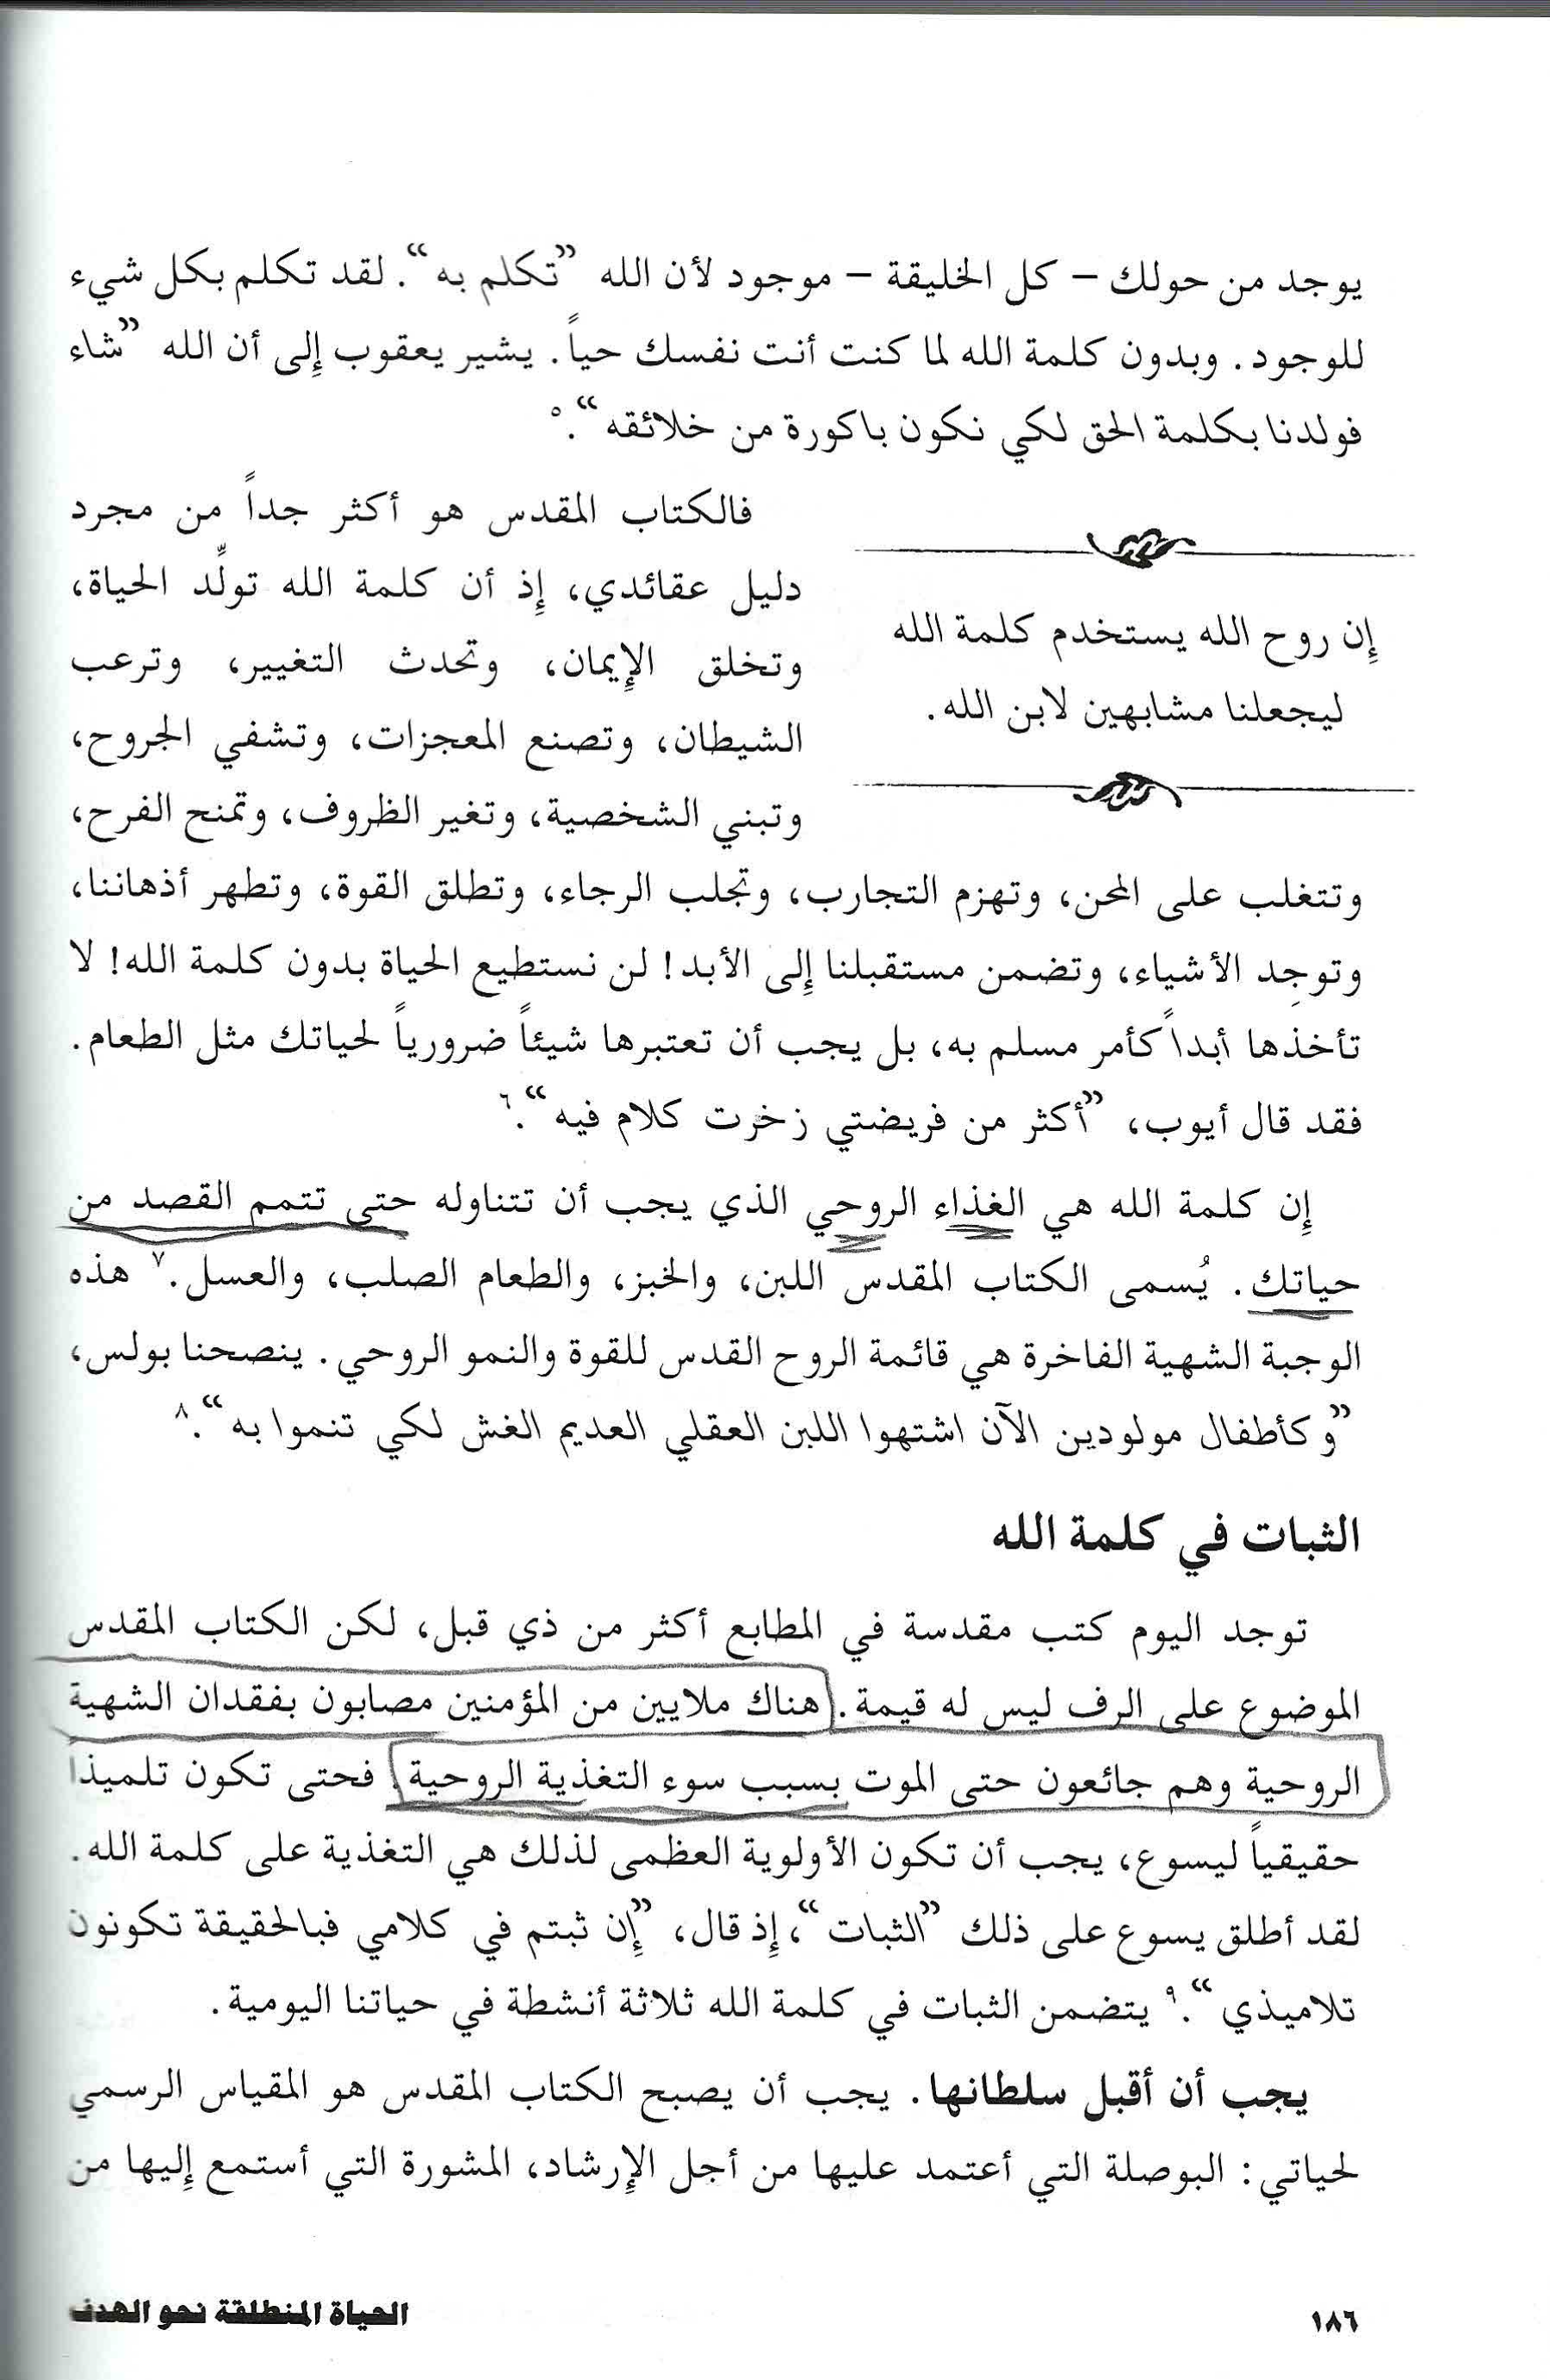 يوجد من حولك – كل الخليقة – موجود لأن الله ”تكلم به“. لقد تكلم بكل شيء
للوجود. وبدون كلمة الله لما كنت أنت نفسك حياً. يشير يعقوب إلى أن الله ”شاء
فولدنا بكلمة الحق لكي نكون باكورة من خلائقه“.٥
إن روح الله يستخدم كلمة الله
ليجعلنا مشابهين لابن الله.
فالكتاب المقدس هو أكثر جداً من مجرد
دليل عقائدي، إذ أن كلمة الله تولِّد الحياة،
وتخلق الإيمان، وتحدث التغيير، وترعب
الشيطان، وتصنع المعجزات، وتشفي الجروح،
وتبني الشخصية، وتغير الظروف، وتمنح الفرح،
وتتغلب على المحن، وتهزم التجارب، وتجلب الرجاء، وتطلق القوة، وتطهر أذهاننا،
وتوجِد الأشياء، وتضمن مستقبلنا إلى الأبد! لن نستطيع الحياة بدون كلمة الله! لا
تأخذها أبداً كأمر مسلم به، بل يجب أن تعتبرها شيئاً ضرورياً لحياتك مثل الطعام.
فقد قال أيوب، ”أكثر من فريضتي زخرت كلام فيه“.٦
إن كلمة الله هي الغذاء الروحي الذي يجب أن تتناوله حتى تتمم القصد من
حياتك. يُسمى الكتاب المقدس اللبن، والخبز، والطعام الصلب، والعسل.٧ هذه
الوجبة الشهية الفاخرة هي قائمة الروح القدس للقوة والنمو الروحي. ينصحنا بولس،
”وكأطفال مولودين الآن اشتهوا اللبن العقلي العديم الغش لكي تنموا به“.٨
الثبات في كلمة الله
توجد اليوم كتب مقدسة في المطابع أكثر من ذي قبل، لكن الكتاب المقدس
الموضوع على الرف ليس له قيمة. هناك ملايين من المؤمنين مصابون بفقدان الشهية
الروحية وهم جائعون حتى الموت بسبب سوء التغذية الروحية. فحتى تكون تلميذاً
حقيقياً ليسوع، يجب أن تكون الأولوية العظمى لذلك هي التغذية على كلمة الله.
لقد أطلق يسوع على ذلك ”الثبات“، إذ قال، ”إن ثبتم في كلامي فبالحقيقة تكونون
تلاميذي“.٩ يتضمن الثبات في كلمة الله ثلاثة أنشطة في حياتنا اليومية.
يجب أن أقبل سلطانها. يجب أن يصبح الكتاب المقدس هو المقياس الرسمي
لحياتي: البوصلة التي أعتمد عليها من أجل الإرشاد، المشورة التي أستمع إليها من
١٨٦
الحياة المنطلقة نحو الهدف